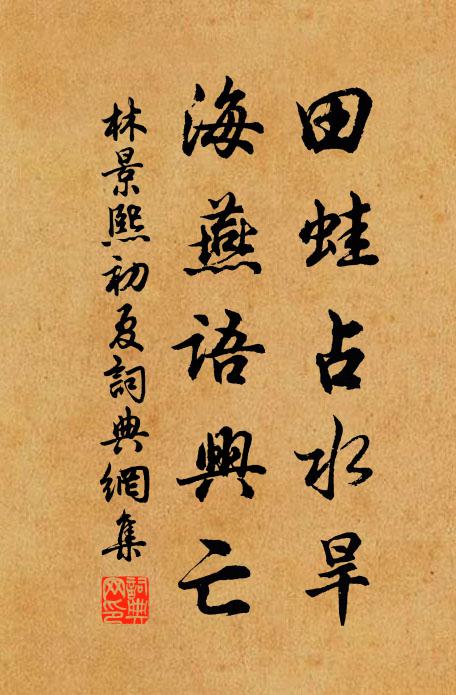 田蛙占水旱
海燕語興亡
林景熙初夏詞典網集
詞典網印